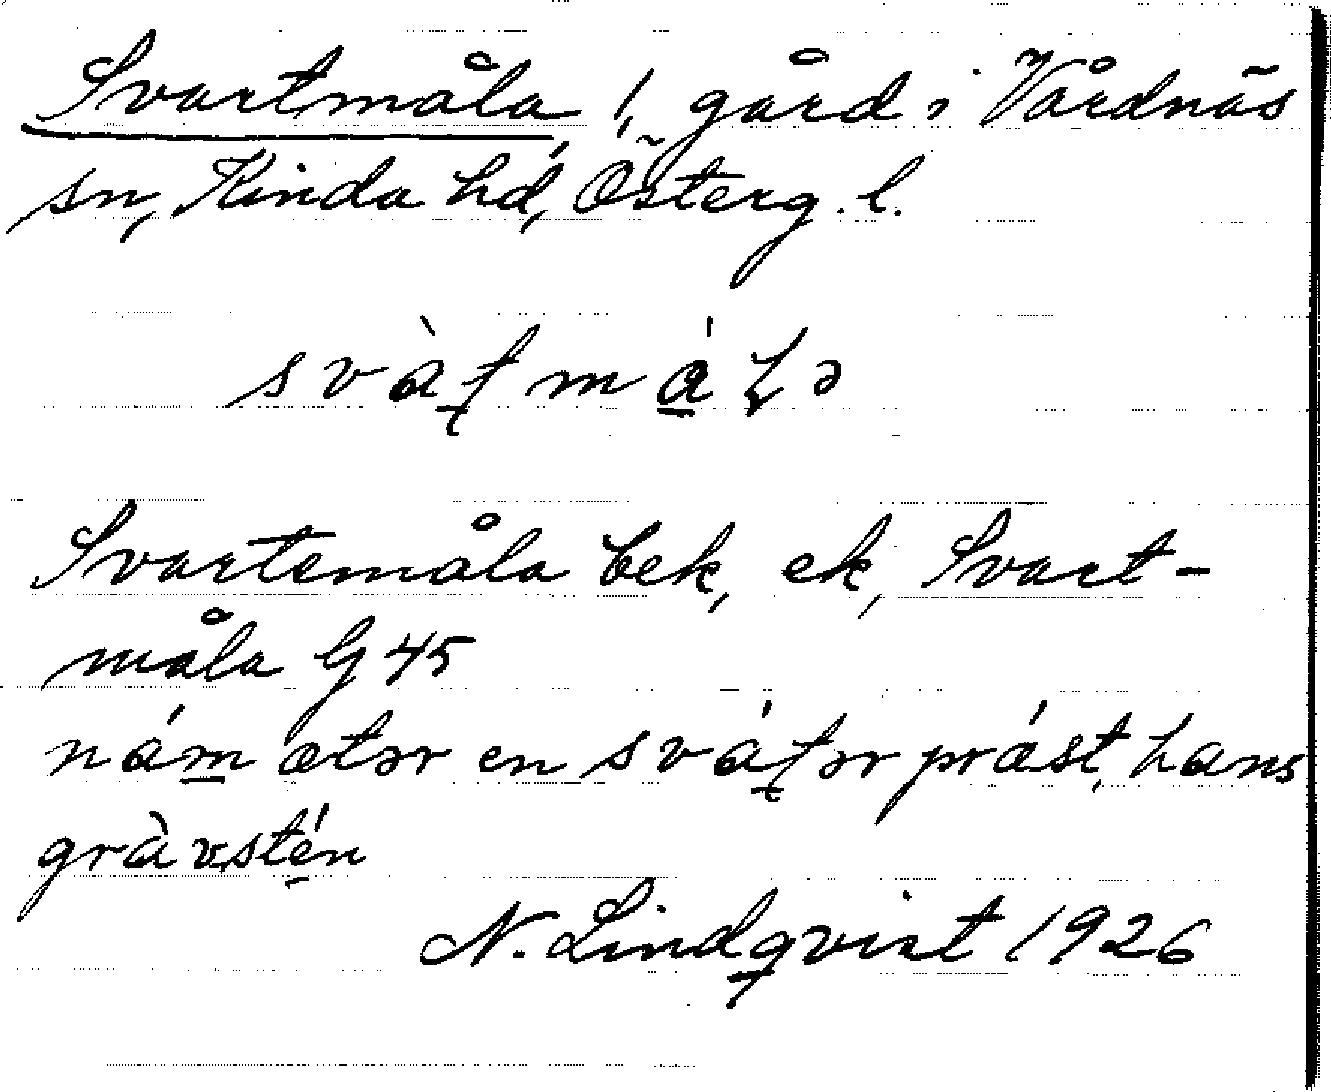 Svartmåla 1, gård i Vårdnäs
sn, Kinda hd, Österg. l.
svàʈmáɽə
Svartemåla bek, ek, Svart-
måla G 45
nám ætər en sváʈər prǽst, hans
gràvstén
N. Lindqvist 1926